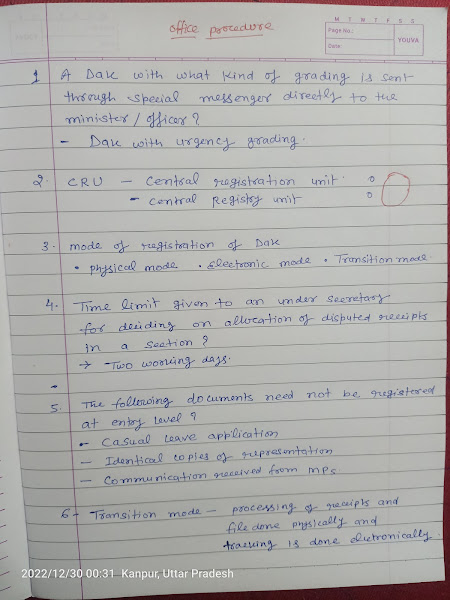 office procedure
M T W T F S S
Page No.:
Date:
YOUVA
1 A Dak with what kind of grading is sent
through special messenger directly to the
minister / officer ?
- Dak with urgency grading.
2. CRU - Central registration unit.
- Central Registry unit
3. mode of registration of Dak
• physical mode • Electronic mode • Transition mode
4. Time limit given to an under secretary
for deciding on allocation of disputed receipts
in a section ?
→ Two working days.
5. The following documents need not be registered
at entry level ?
- Casual leave application
- Identical copies of representation
- Communication received from MPs.
6- Transition mode - processing of receipts and
file done physically and
tracking is done electronically.
2022/12/30 00:31 Kanpur, Uttar Pradesh